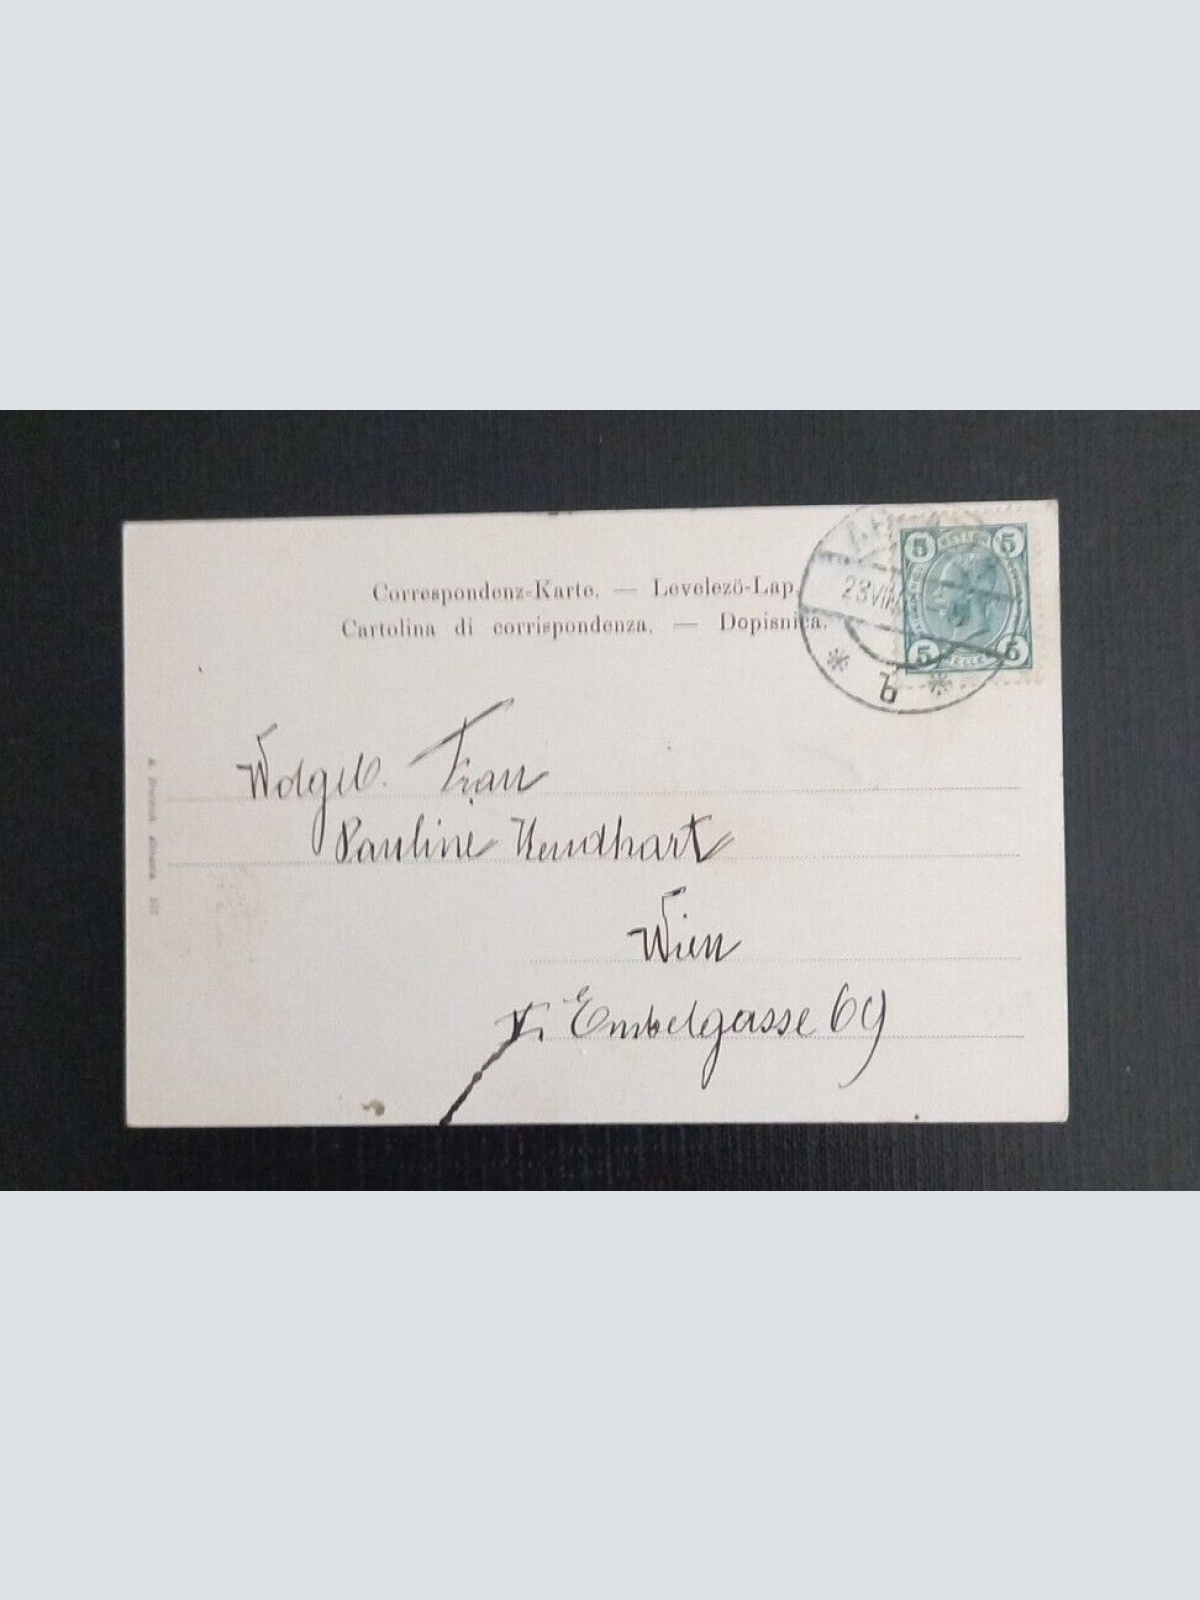 Correspondenz-Karte. — Levelezö-Lap.
Cartolina di corrispondenza. — Dopisnica.
5 HELLER 5
23 VII
5 HELLER 5
b
Wolgeb. Frau
Pauline
Wien
V. Embelgasse 69